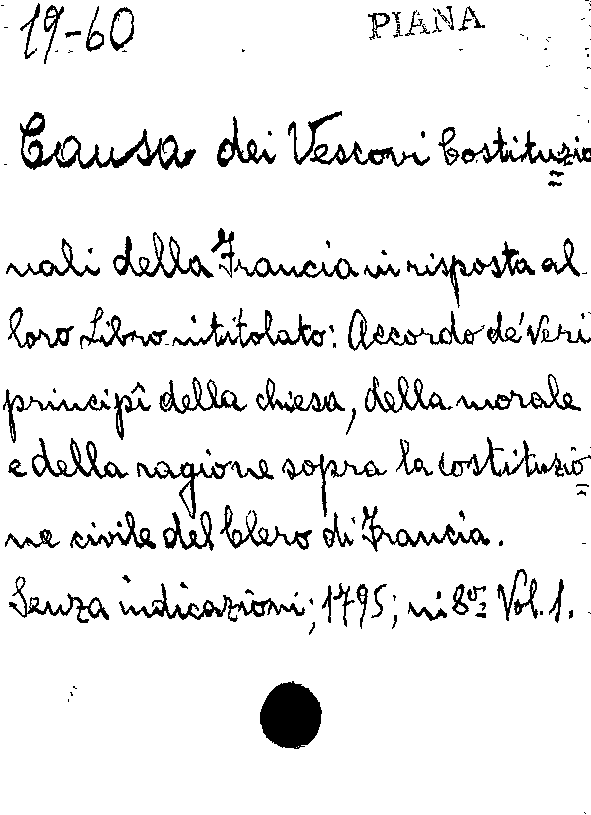 19-60 PIANA
Causa dei Vescovi Costituzio=
nali della Francia in risposta al
loro Libro intitolato: Accordo de' veri
principî della chiesa, della morale
e della ragione sopra la costituzio=
ne civile del Clero di Francia.
Senza indicazioni; 1795; in 8º; Vol. 1.